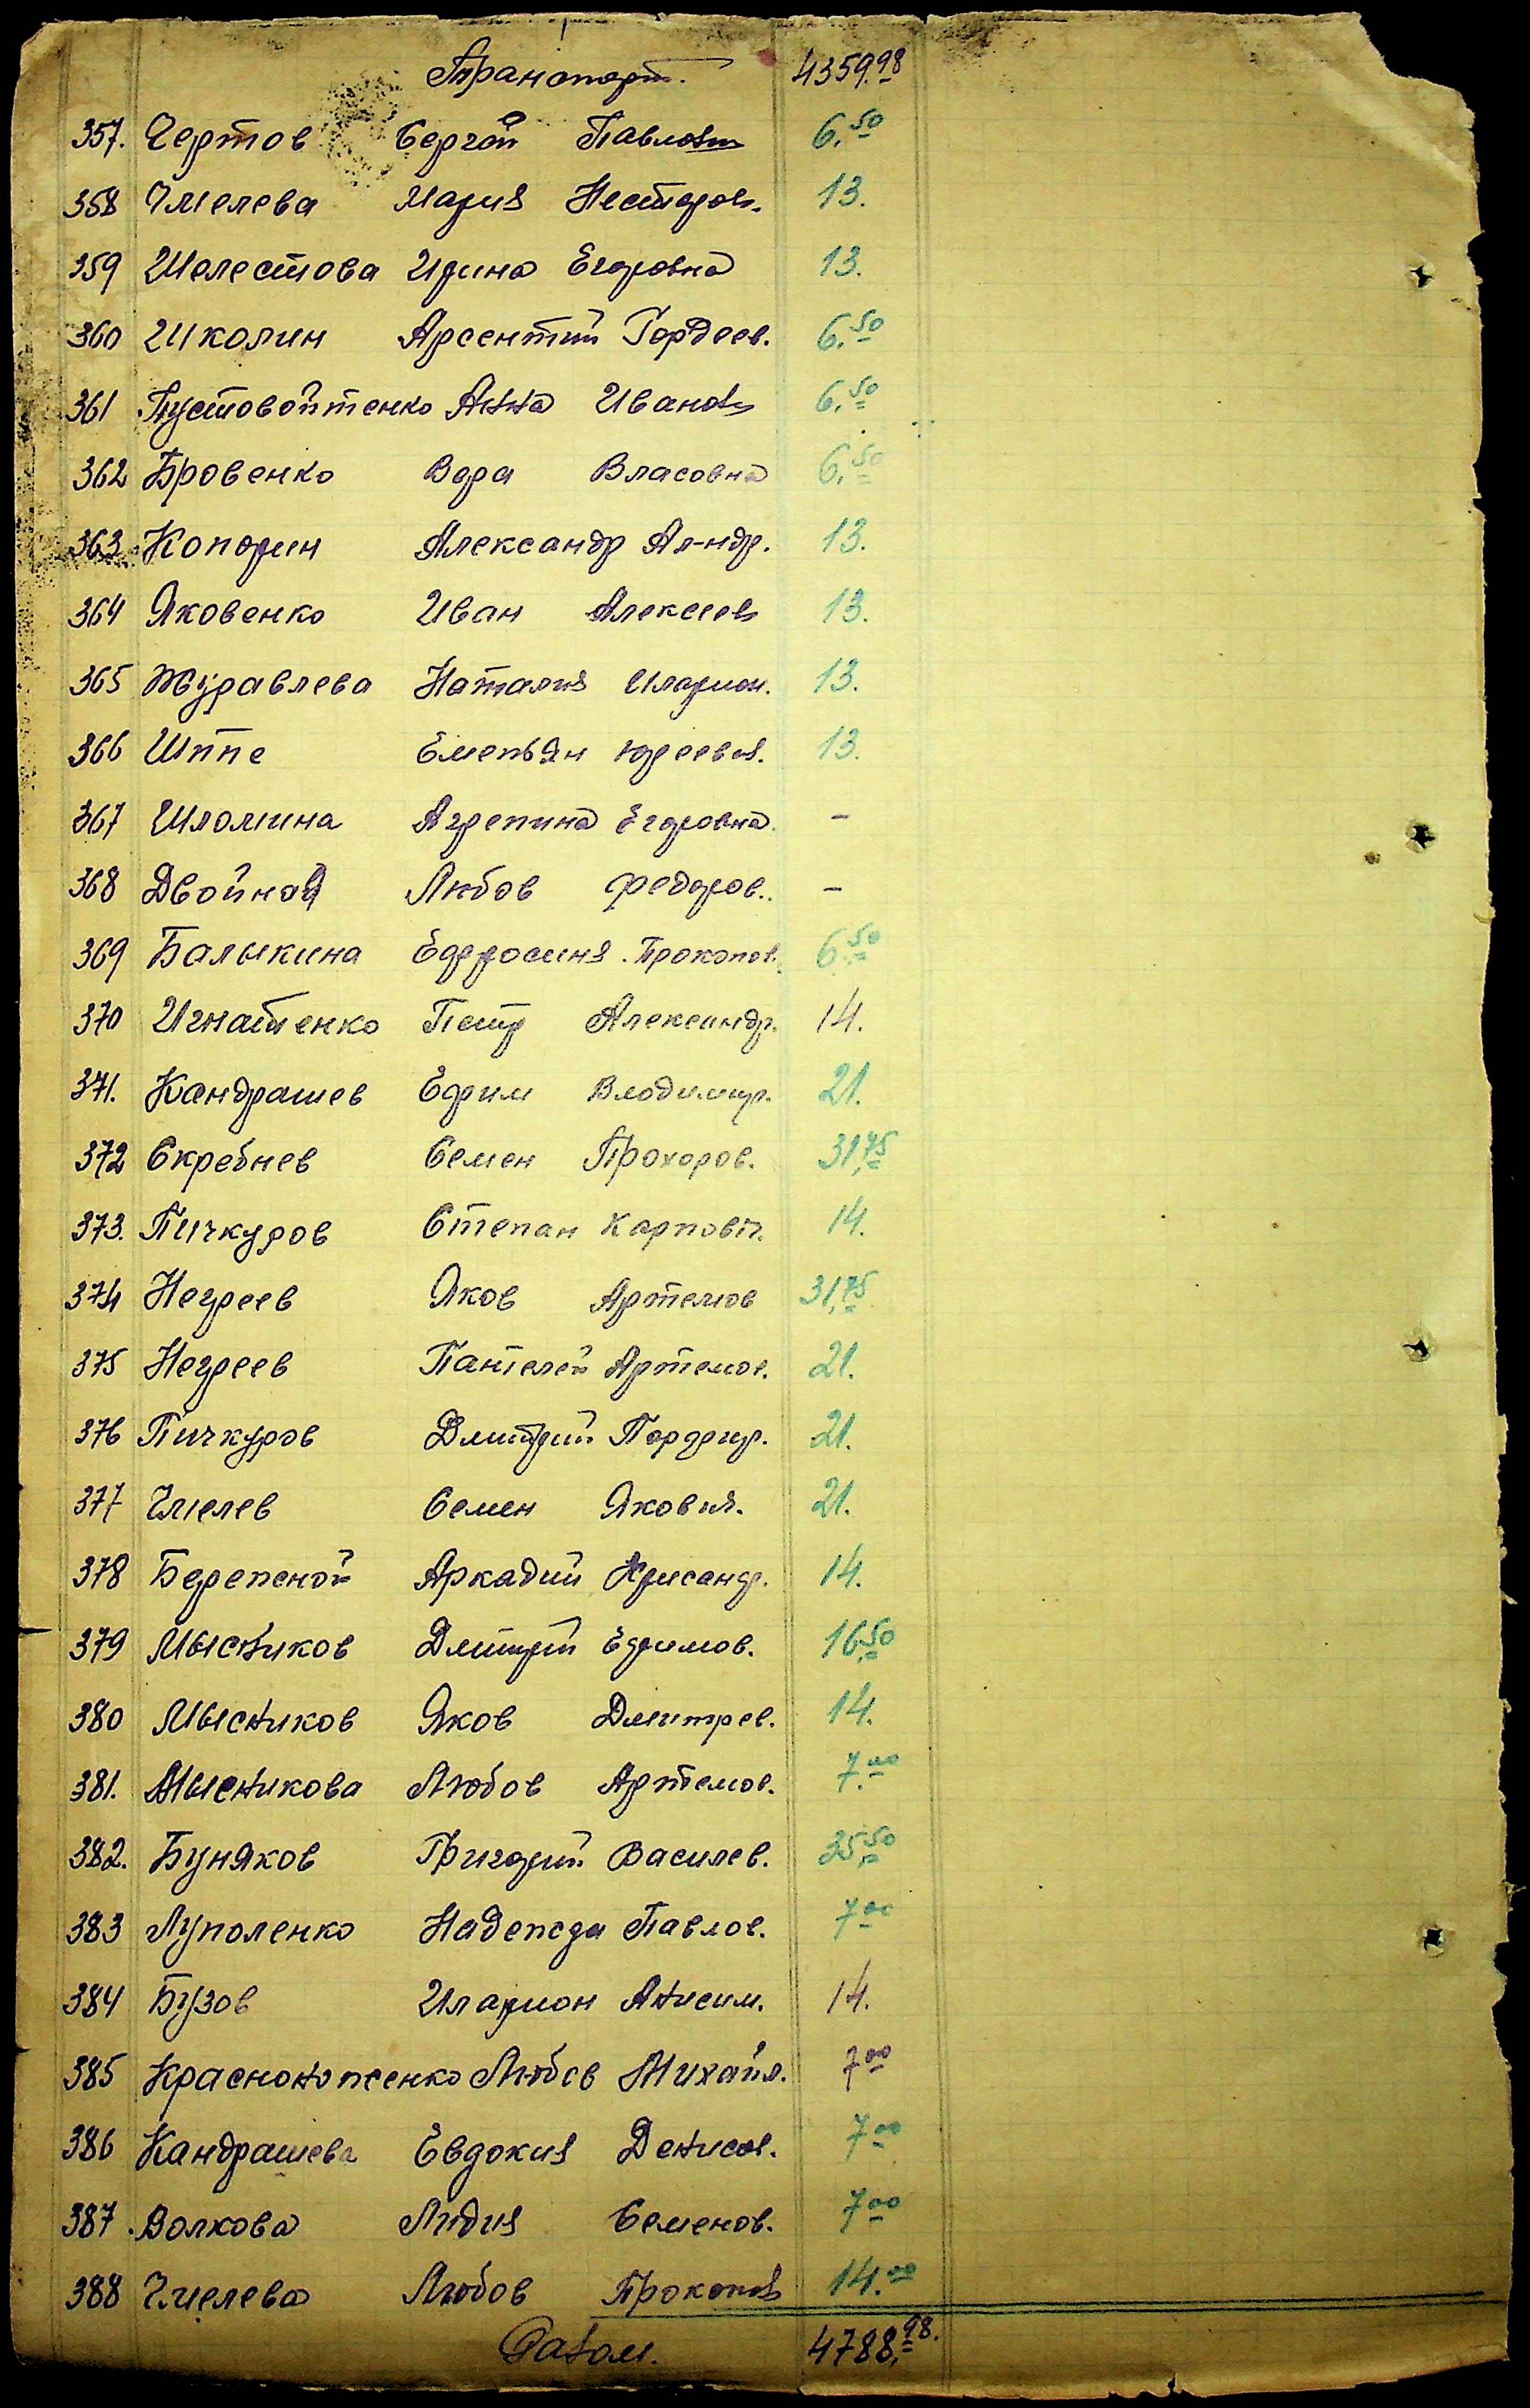 Транспорт. 4359.98
357. Чертов Сергей Павлович 6.50
358 Чмелева Мария Несторов. 13.
359 Шелестова Ирина Егоровна 13.
360 Школин Арсентий Гордеев. 6.50
361 Пустовойтенко Анна Иванов 6.50
362 Бровенко Вера Власовна 6.50
363 Копорин Александр Ал-ндр. 13.
364 Яковенко Иван Алексеев 13.
365 Журавлева Наталия Иларион. 13.
366 Шппе Емельян 13.
367 Шломина Агрепина Егоровна. –
368 Двойная Любов Федоров. –
369 Балыкина Ефросиня Прокопов. 6.50
370 Игнатенко Петр Александр. 14.
371. Кандрашев Ефим Владимир. 21.
372 Скребнев Семен Прохоров. 31,75
373. Пичкуров Степан Карпович. 14.
374 Негреев Яков Артемов 31,75
375 Негреев Пантелей Артемов. 21.
376 Пичкуров Дмитрий Порфир. 21.
377 Чмелев Семен Яковл. 21.
378 Берепеной Аркадий Хрисанф. 14.
379 Мысников Дмитрий Ефимов. 16,50
380 Мысников Яков Дмитрев. 14.
381. Мысникова Любов Артемов. 7.00
382. Буняков Григорий Василев. 35,50
383 Луполенко Надежда Павлов. 7 00
384 Бузов Иларион Анисим. 14.
385 Краснокоженко Любов Михайл. 7 00
386 Кандрашева Евдокия Денисов. 7 00
387. Волкова Лидия Семенов. 7 00
388 Чмелева Любов Прокопов 14.00
Разом. 4788,98.